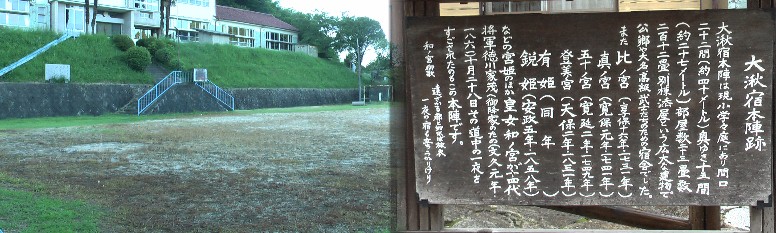 大湫宿本陣跡
大湫宿本陣は現小学校々庭にあり間口
二十二間(約四十メートル)奥行き十五間
(約二十七メートル)部屋数二十三畳数
二百十二畳別棟添屋という広大な建物で
公卿や大名高級武士たちのための宿舎でした。
また
比ノ宮(享保十六年・一七三一年)
真ノ宮(寛保元年・一七四一年)
五十ノ宮(寛延二年・一七四九年)
登美宮(天保二年・一八三一年)
有姫(同年)
鋭姫(安政五年・一八五八年)
などの宮姫のほか皇女和ノ宮が十四代
将軍徳川家茂へ御降嫁のため文久元年・
一八六一年十月二十八日その道中の一夜を
すごされたのもこの本陣です。
和ノ宮歌
遠ざかる都と知れば旅衣
一夜の宿も立ちうかりけり